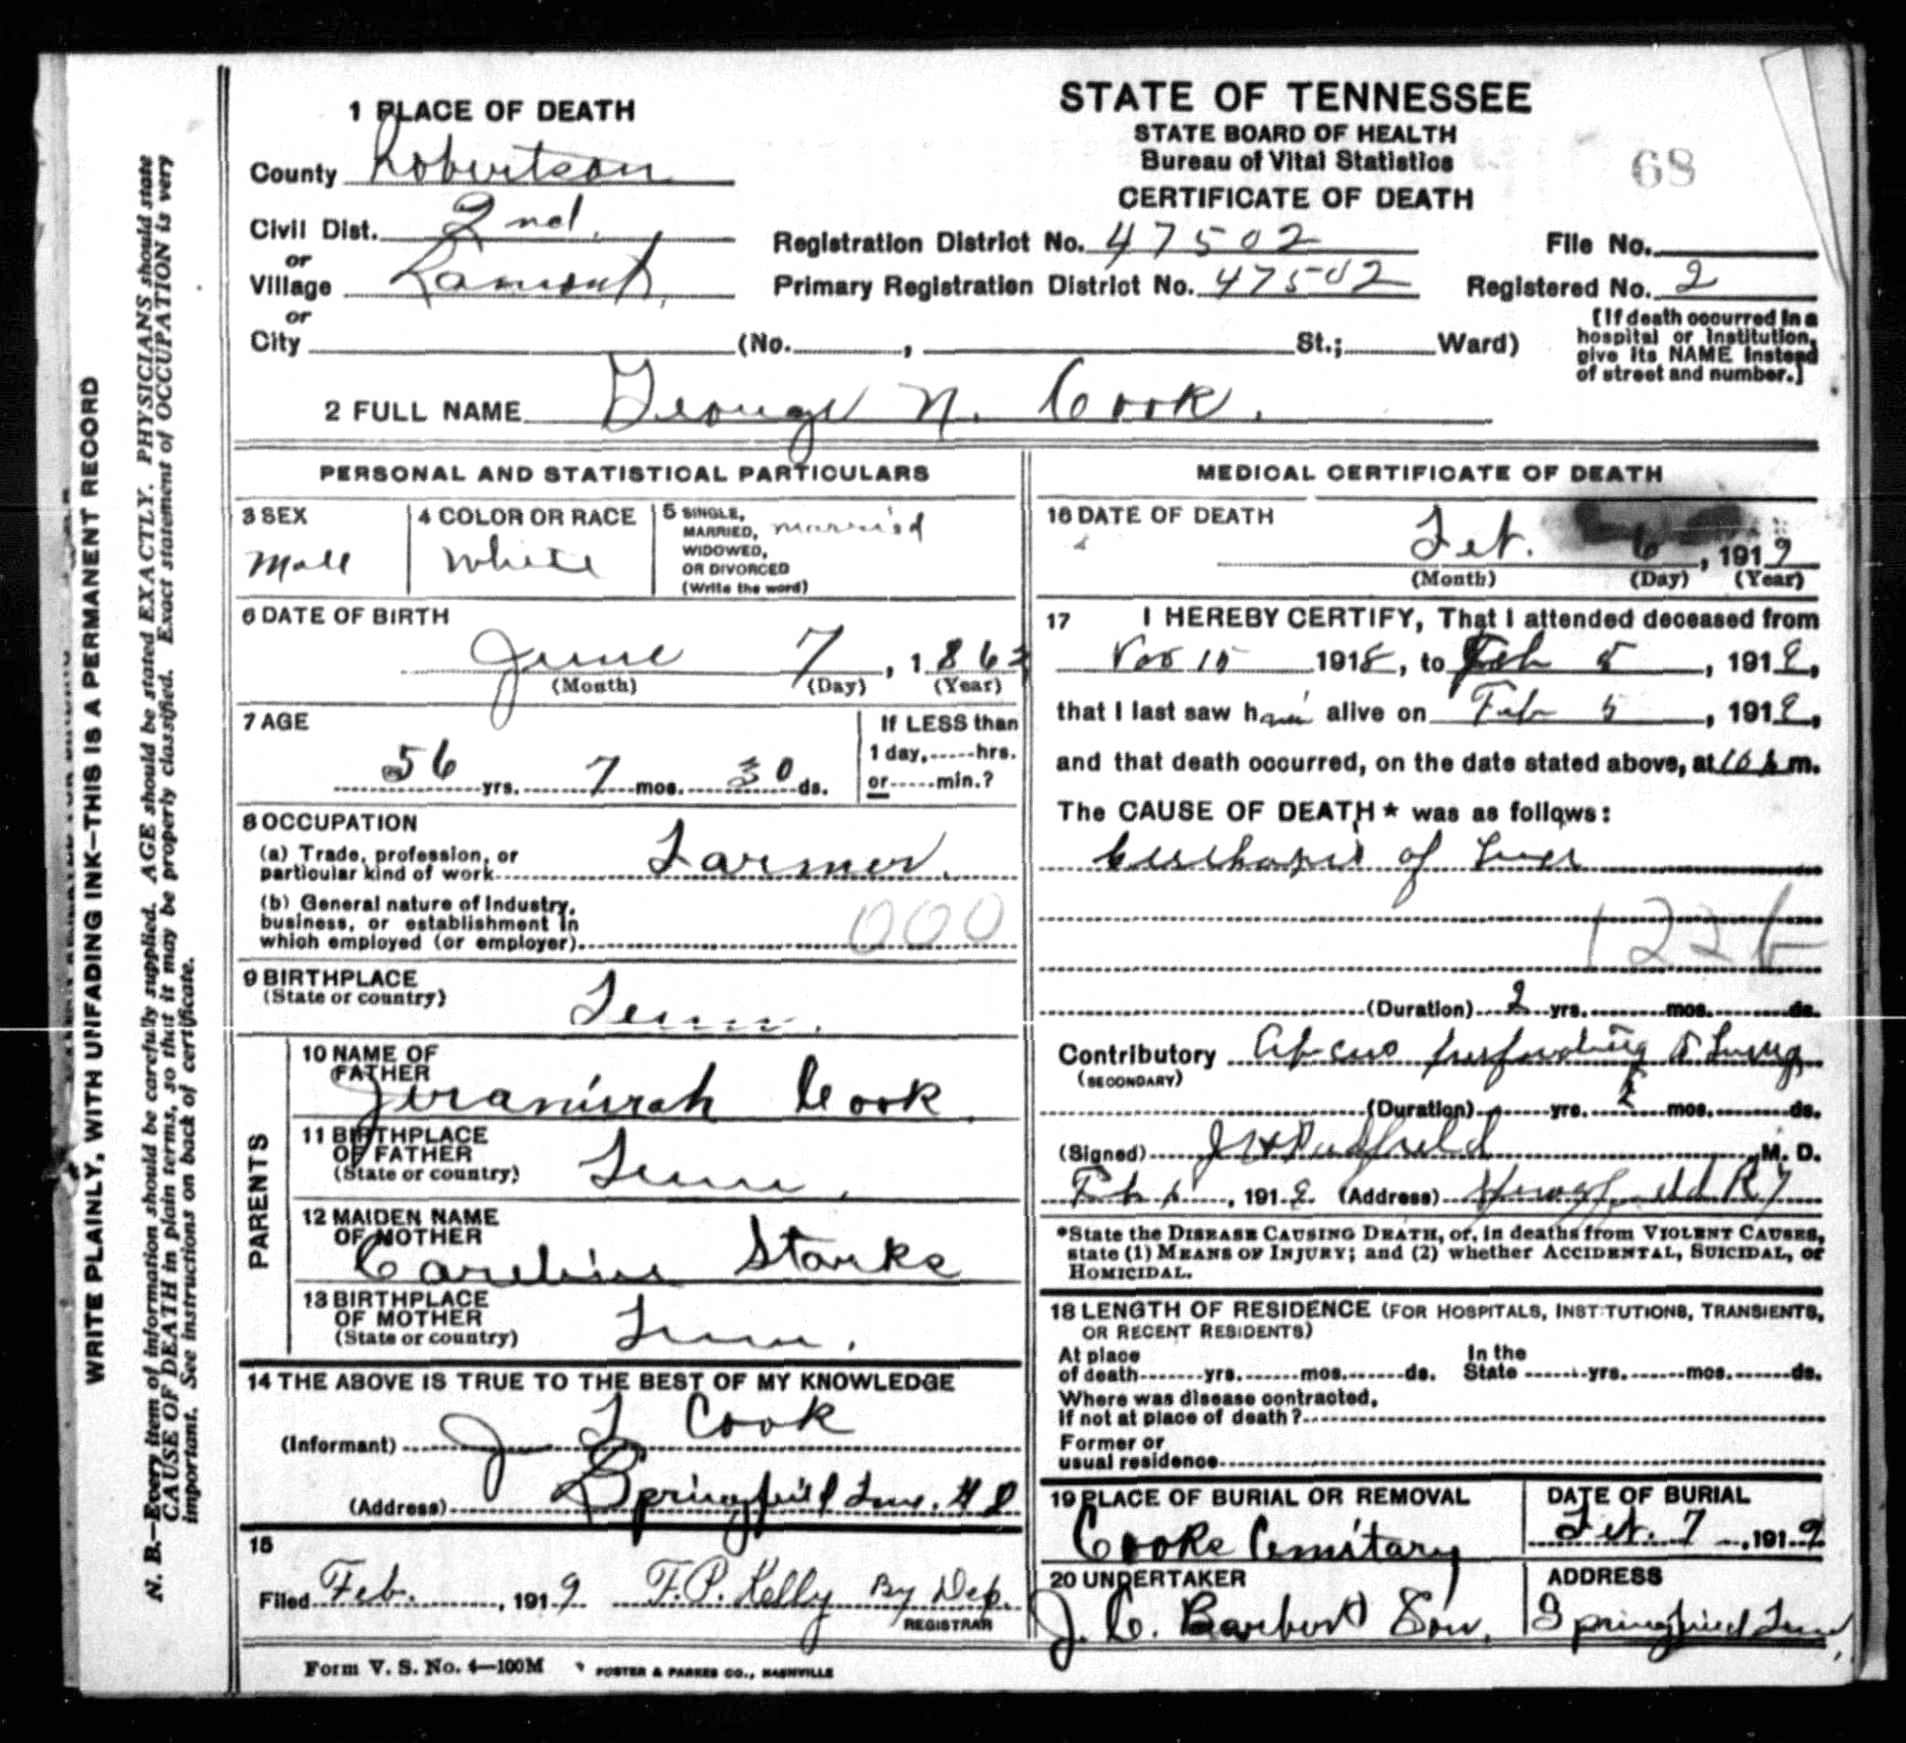 STATE OF TENNESSEE
STATE BOARD OF HEALTH
Bureau of Vital Statistics
CERTIFICATE OF DEATH
68
1 PLACE OF DEATH
County Robertson
Civil Dist. 2nd.
or
Village Lamont,
or
City (No. , St.; Ward)
Registration District No. 47502
File No.
Primary Registration District No. 47502
Registered No. 2
[If death occurred in a
hospital or institution,
give its NAME instead
of street and number.]
2 FULL NAME George N. Cook.
PERSONAL AND STATISTICAL PARTICULARS
3 SEX
Male
4 COLOR OR RACE
White
5 SINGLE,
MARRIED,
WIDOWED,
OR DIVORCED
(Write the word)
married
6 DATE OF BIRTH
June 7, 1862
(Month) (Day) (Year)
7 AGE
56 yrs. 7 mos. 30 ds.
If LESS than
1 day, hrs.
or min.?
8 OCCUPATION
(a) Trade, profession, or
particular kind of work Farmer.
(b) General nature of Industry,
business, or establishment in
which employed (or employer)
000
9 BIRTHPLACE
(State or country)
Tenn.
PARENTS
10 NAME OF
FATHER
Jeramirah Cook.
11 BIRTHPLACE
OF FATHER
(State or country)
Tenn.
12 MAIDEN NAME
OF MOTHER
Careline Starks
13 BIRTHPLACE
OF MOTHER
(State or country)
Tenn.
14 THE ABOVE IS TRUE TO THE BEST OF MY KNOWLEDGE
(Informant) Cook
(Address) Springfield Tenn.
15
Filed Feb. , 1919 F.P. Kelly By Dep.
REGISTRAR
Form V. S. No. 4—100M
FOSTER & PARKES CO., NASHVILLE
MEDICAL CERTIFICATE OF DEATH
16 DATE OF DEATH
Feb. 6, 1919
(Month) (Day) (Year)
17 I HEREBY CERTIFY, That I attended deceased from
Nov 15 1918, to Feb 5, 1919,
that I last saw him alive on Feb 5, 1919,
and that death occurred, on the date stated above, at 10 m.
The CAUSE OF DEATH* was as follows:
of Liver
122b
(Duration) 2 yrs. mos. ds.
Contributory perforating Lung
(SECONDARY)
(Duration) yrs. mos. ds.
(Signed) M. D.
Feb , 1919 (Address)
*State the DISEASE CAUSING DEATH, or, in deaths from VIOLENT CAUSES,
state (1) MEANS OF INJURY; and (2) whether ACCIDENTAL, SUICIDAL, or
HOMICIDAL.
18 LENGTH OF RESIDENCE (FOR HOSPITALS, INSTITUTIONS, TRANSIENTS,
OR RECENT RESIDENTS)
At place
of death yrs. mos. ds.
In the
State yrs. mos. ds.
Where was disease contracted,
If not at place of death?
Former or
usual residence
19 PLACE OF BURIAL OR REMOVAL
Cooks Cemitary
DATE OF BURIAL
Feb. 7, 1919
20 UNDERTAKER
J. C. Son.
ADDRESS
Springfield Tenn.
WRITE PLAINLY, WITH UNFADING INK—THIS IS A PERMANENT RECORD
N. B.—Every item of information should be carefully supplied. AGE should be stated EXACTLY. PHYSICIANS should state
CAUSE OF DEATH in plain terms, so that it may be properly classified. Exact statement of OCCUPATION is very
important. See instructions on back of certificate.